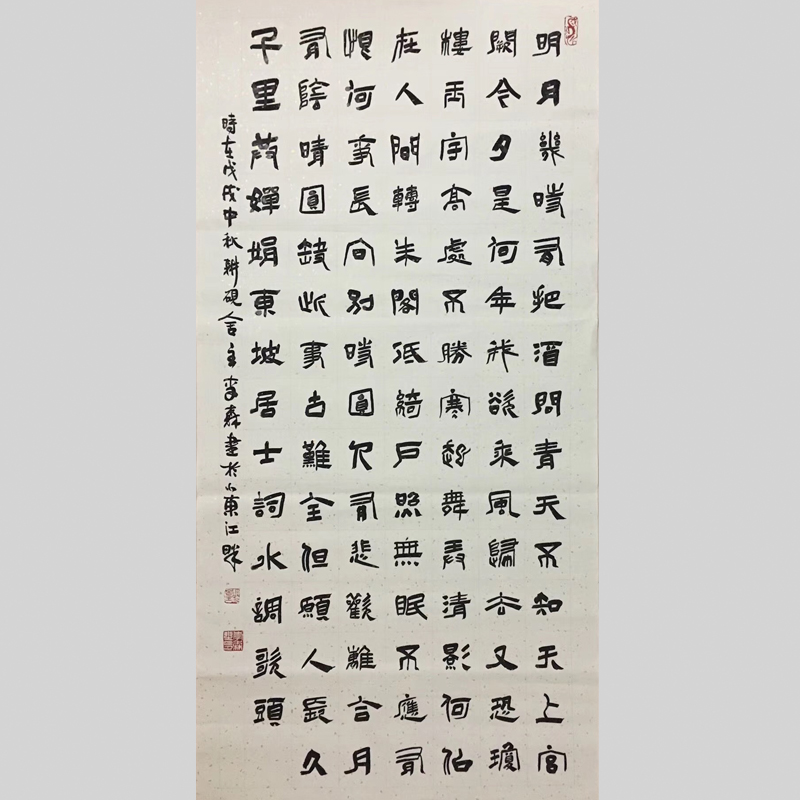 明月幾時有把酒問青天不知天上宮
闕今夕是何年我欲乘風歸去又恐瓊
樓玉宇高處不勝寒起舞弄清影何似
在人間轉朱閣低綺戶照無眠不應有
恨何事長向別時圓人有悲歡離合月
有陰晴圓缺此事古難全但願人長久
千里共嬋娟東坡居士詞水調歌頭
時在戊戌中秋耕硯舍主李森書於山東